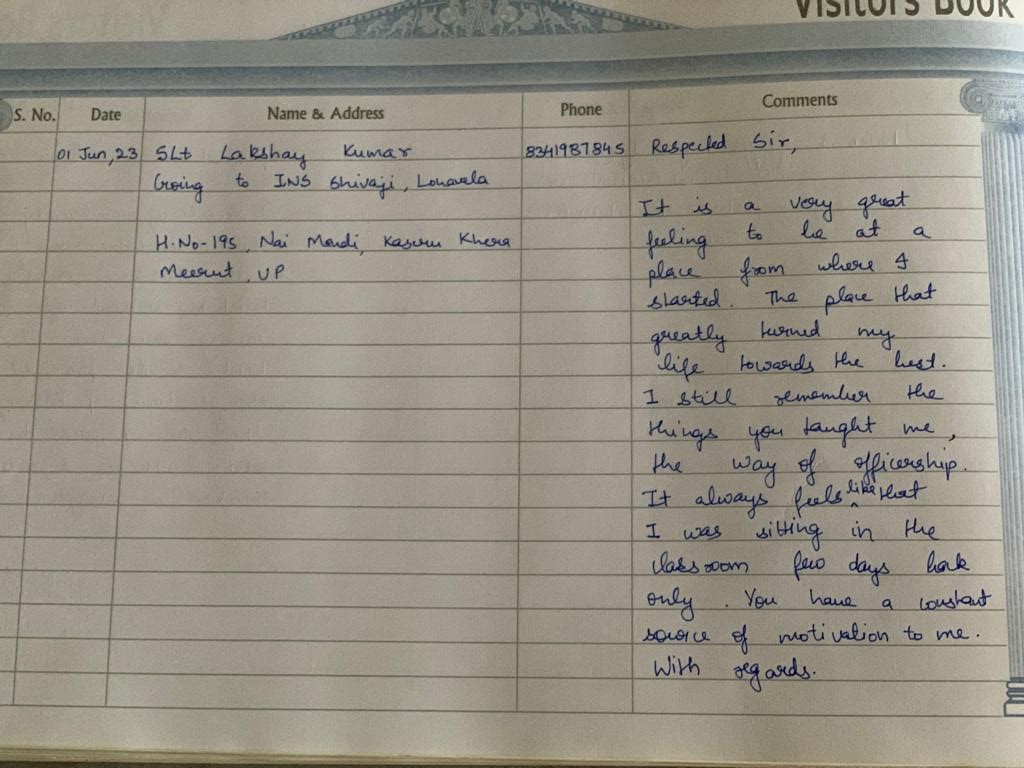 Visitors Book
S. No. Date Name & Address Phone Comments
01 Jun, 23 SLt Lakshay Kumar 8341987845 Respected Sir,
Going to INS Shivaji, Lonavala
It is a very great
H.No-195, Nai Mandi, Kaseru Khera feeling to be at a
Meerut, UP place from where I
started. The place that
greatly turned my
life towards the best.
I still remember the
things you taught me,
the way of officership.
It always feels like that
I was sitting in the
classroom few days back
only. You have a constant
source of motivation to me.
With regards.